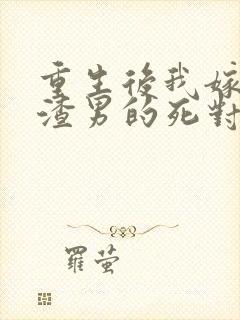 重生後我嫁
渣男的死對
羅萤